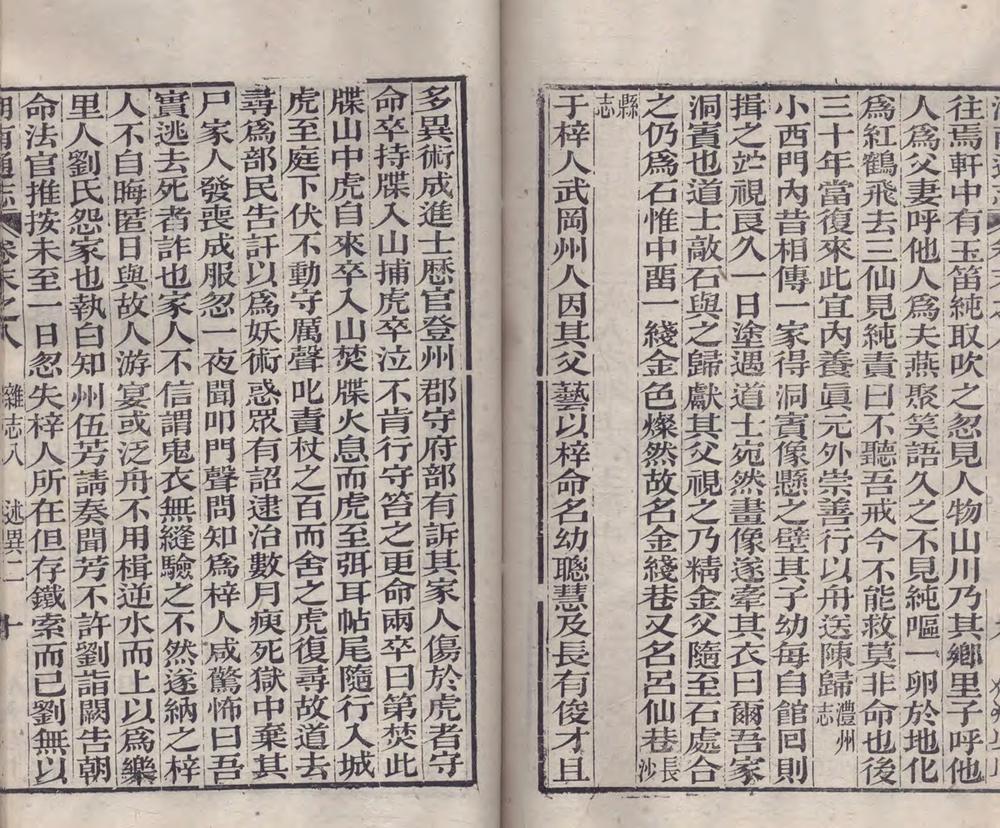 往焉軒中有玉笛純取吹之忽見人物山川乃其鄉里子呼他
人爲父妻呼他人爲夫燕聚笑語久之不見純嘔一卵於地化
爲紅鶴飛去三仙見純責曰不聽吾戒今不能救莫非命也後
三十年當復來此宜內養眞元外崇善行以舟送陳歸澧州志
小西門內昔相傳一家得洞賓像懸之壁其子幼每自館回則
揖之竚視良久一日塗遇道士宛然畫像遂牽其衣曰爾吾家
洞賓也道士敲石與之歸獻其父視之乃精金父隨至石處合
之仍爲石惟中畱一綫金色燦然故名金綫巷又名呂仙巷長沙
縣志
于梓人武岡州人因其父藝以梓命名幼聰慧及長有俊才且
多異術成進士歷官登州郡守府部有訴其家人傷於虎者守
命卒持牒入山捕虎卒泣不肯行守笞之更命兩卒曰第焚此
牒山中虎自來卒入山焚牒火息而虎至弭耳帖尾隨行入城
虎至庭下伏不動守厲聲叱責杖之百而舍之虎復尋故道去
尋爲部民告訐以爲妖術惑眾有詔逮治數月瘐死獄中棄其
尸家人發喪成服忽一夜聞叩門聲問知爲梓人咸驚怖曰吾
實逃去死者詐也家人不信謂鬼衣無縫驗之不然遂納之梓
人不自晦匿日與故人游宴或泛舟不用楫逆水而上以爲樂
里人劉氏怨家也執白知州伍芳請奏聞芳不許劉詣闕告朝
命法官推按未至一日忽失梓人所在但存鐵索而已劉無以
湖南通志 卷末之八 雜志八 述異二 十